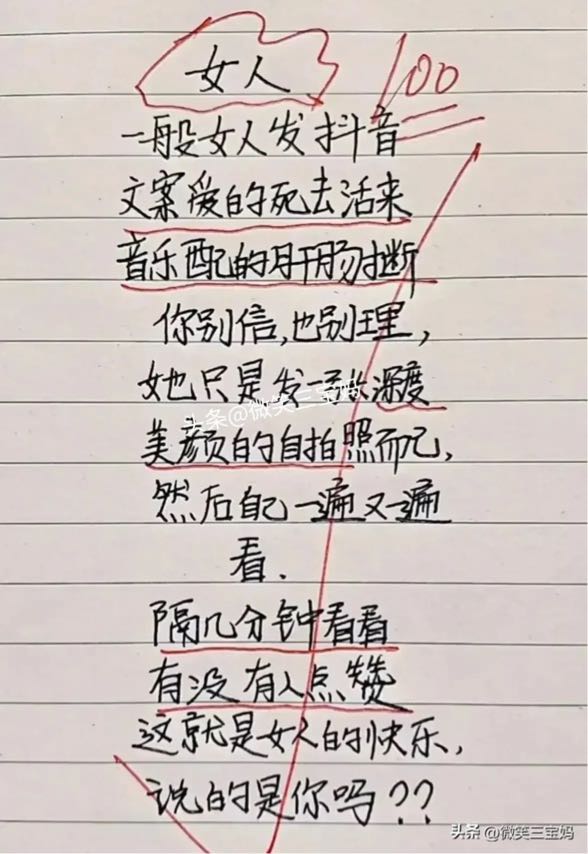 女人
100
一般女人发抖音
文案爱的死去活来
音乐配的肝肠寸断
你别信,也别理,
她只是发一张深度
头条@微笑三宝妈
美颜的自拍照而已,
然后自己一遍又一遍
看.
隔几分钟看看
有没有人点赞
这就是女人的快乐,
说的是你吗??
头条@微笑三宝妈